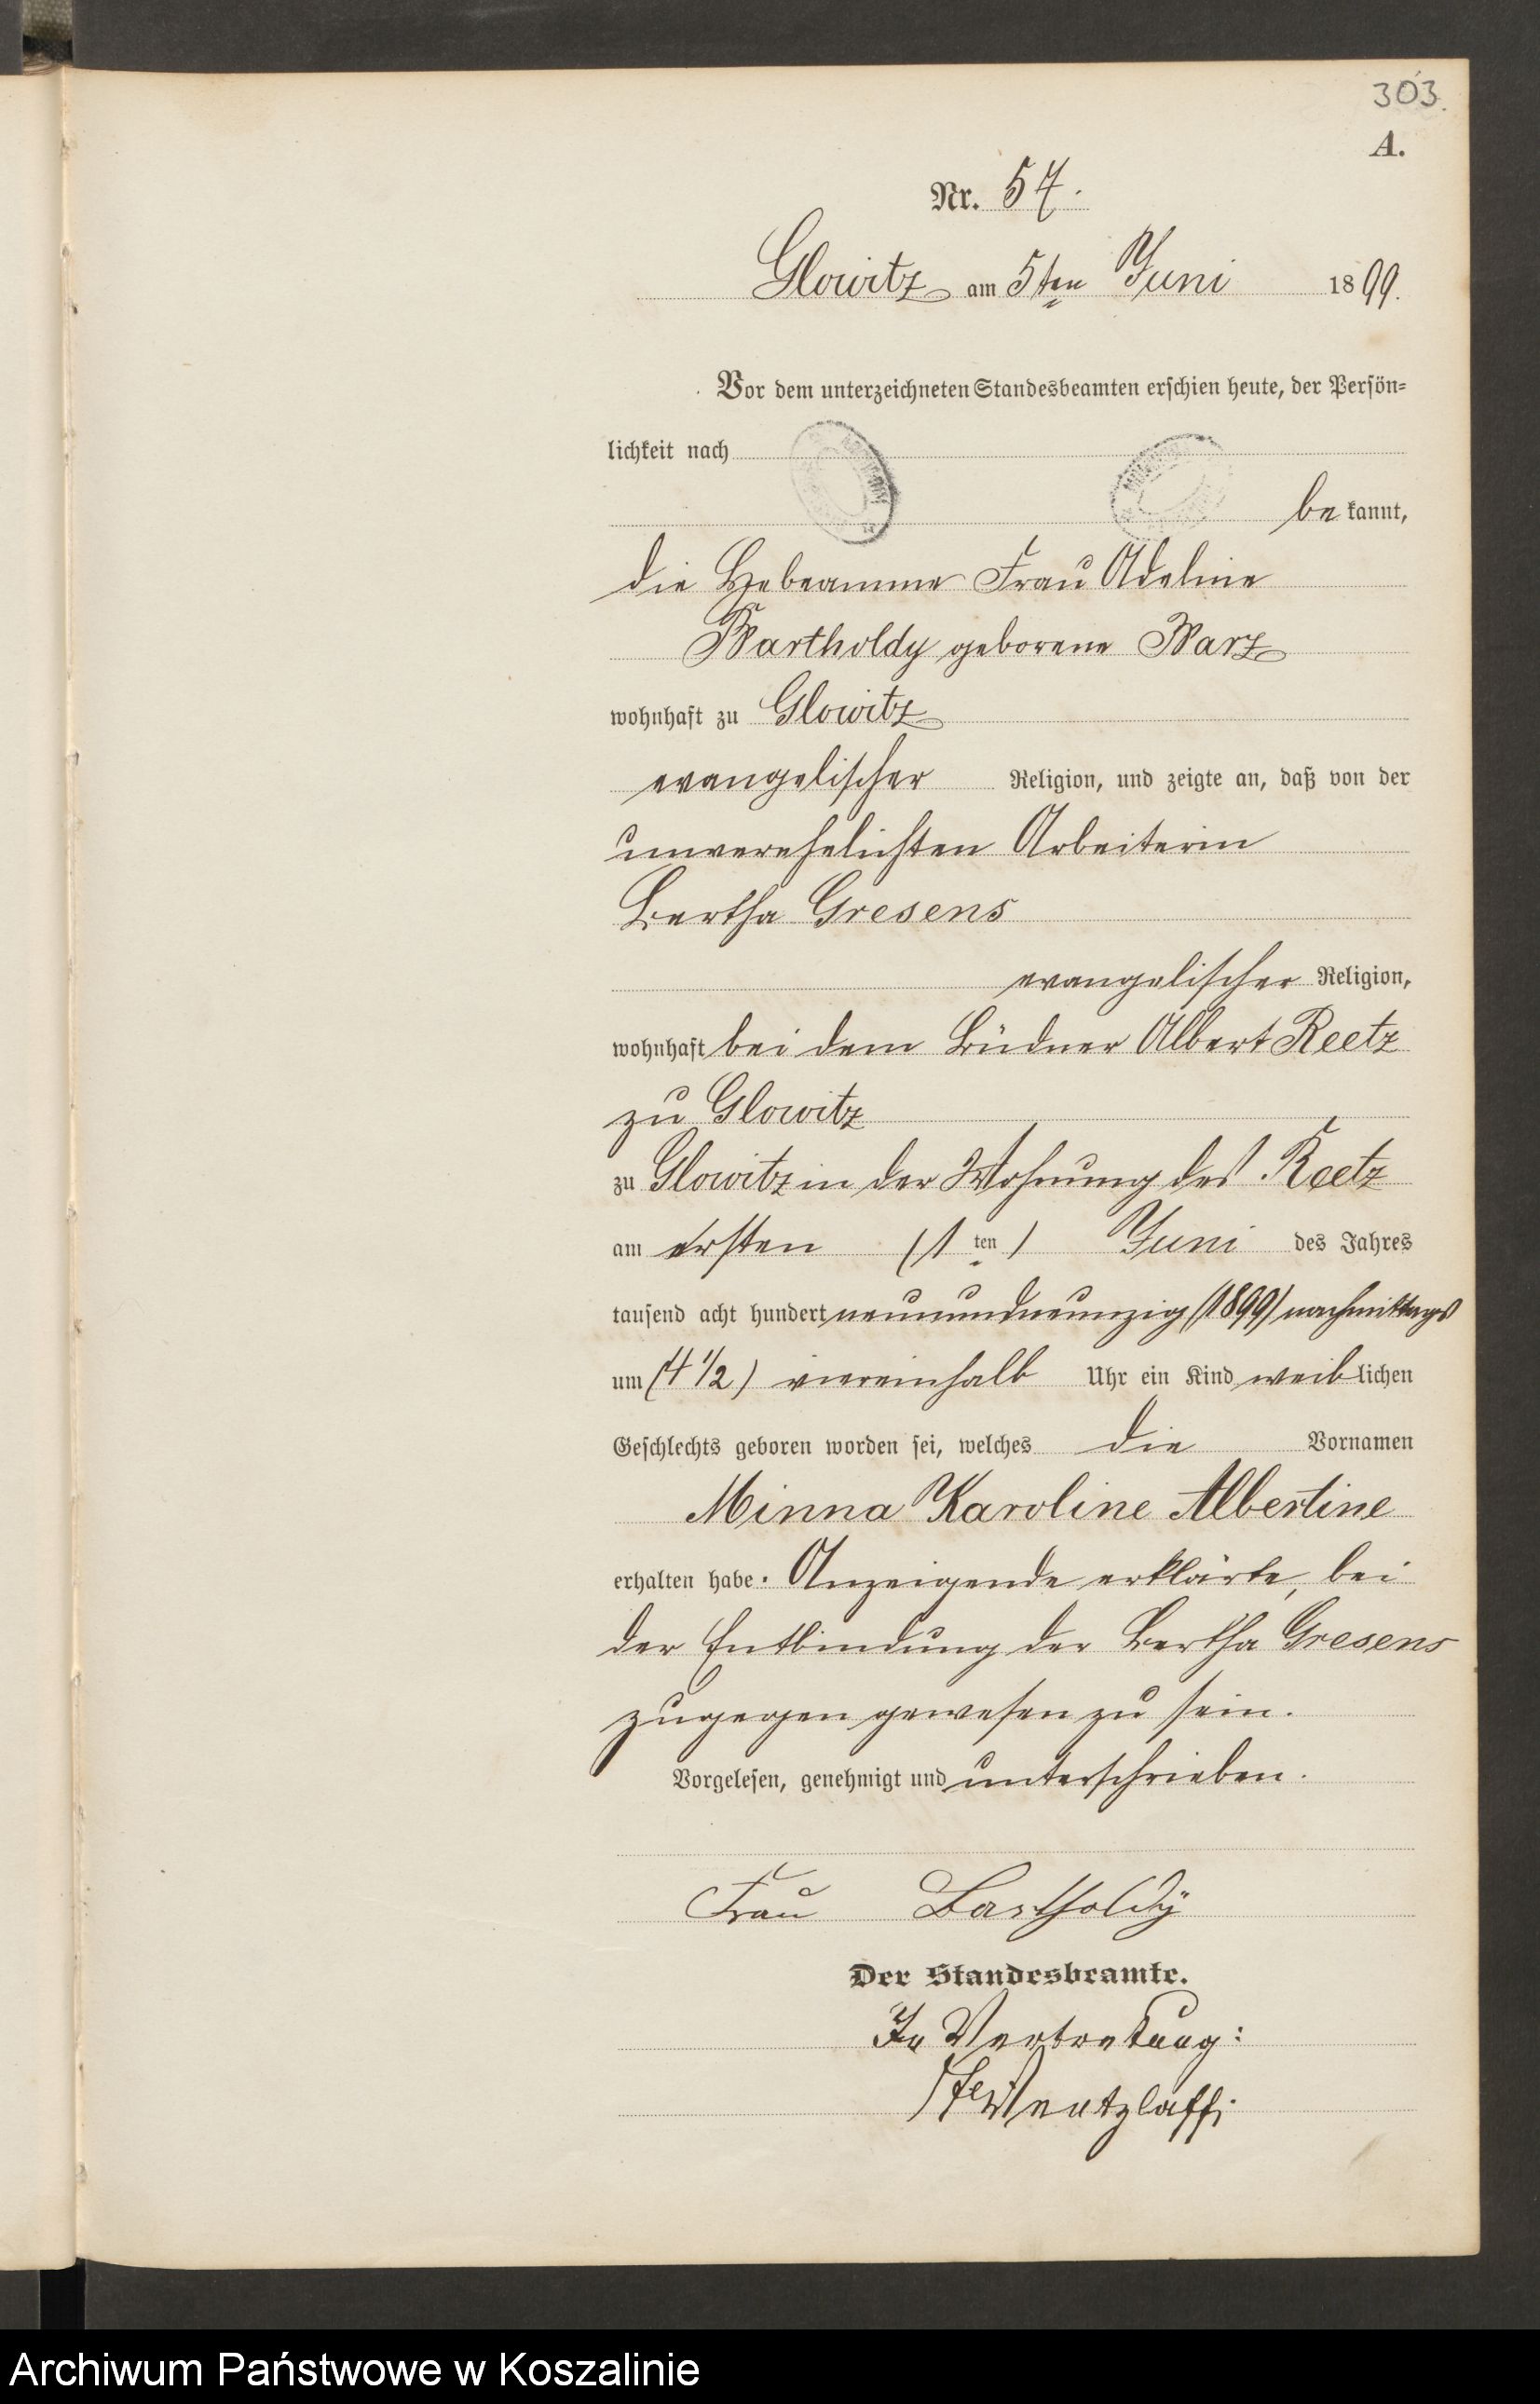 303.
A.
Nr. 57.
Glowitz am 5ten Juni 1899.
Vor dem unterzeichneten Standesbeamten erschien heute, der Persön=
lichkeit nach
be kannt,
die Hebeamme Frau Adeline
Bartholdy geborene Barz
wohnhaft zu Glowitz
evangelischer Religion, und zeigte an, daß von der
unverehelichten Arbeiterin
Bertha Gresens
evangelischer Religion,
wohnhaft bei dem Büdner Albert Reetz
zu Glowitz
zu Glowitz in der Wohnung des Reetz
am ersten (1 ten) Juni des Jahres
tausend acht hundert neunundneunzig (1899) nachmittags
um (4 1/2) viereinhalb Uhr ein Kind weiblichen
Geschlechts geboren worden sei, welches die Vornamen
Minna Karoline Albertine
erhalten habe. Anzeigende erklärte, bei
der Entbindung der Bertha Gresens
zugegen gewesen zu sein.
Vorgelesen, genehmigt und unterschrieben.
Frau Bartholdÿ
Der Standesbeamte.
In Vertretung:
Wentzlaff.
Archiwum Państwowe w Koszalinie